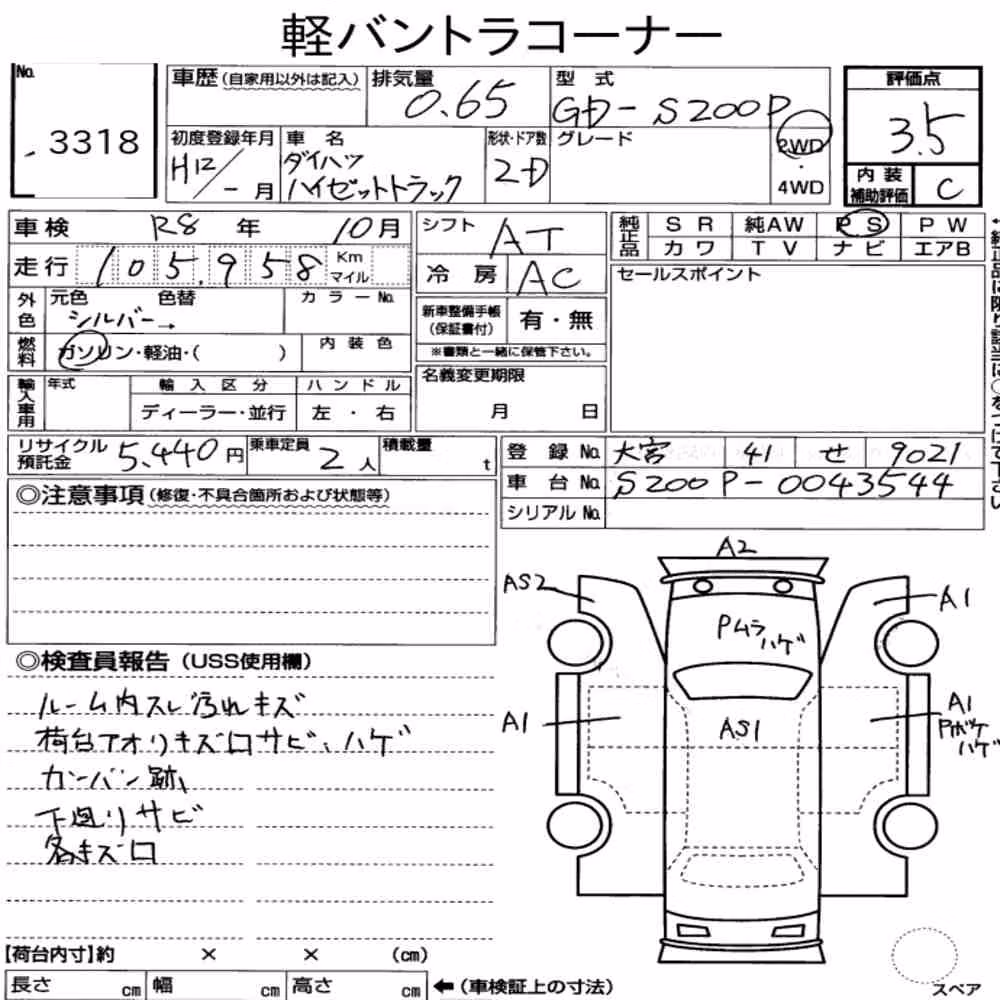 軽バントラコーナー
No. 3318
車歴(自家用以外は記入)
排気量 0.65
型式 GD-S200P
評価点 3.5
内装補助評価 C
初度登録年月 H12/-月
車名 ダイハツ ハイゼットトラック
形状・ドア数 2-D
グレード
2WD・4WD
車検 R8年 10月
シフト AT
純正品 SR 純AW PS PW
カワ TV ナビ エアB
走行 105,958 Km マイル
冷房 AC
セールスポイント
外色 元色 シルバー→ 色替 カラーNo.
新車整備手帳(保証書付) 有・無
燃料 ガソリン・軽油・( ) 内装色
※書類と一緒に保管下さい。
輸入車用 年式 輸入区分 ハンドル
ディーラー・並行 左・右
名義変更期限
月 日
リサイクル預託金 5,440円 乗車定員 2人 積載量 t
登録No. 大宮 41 せ 9021
車台No. S200P-0043544
シリアルNo.
◎注意事項(修復・不具合箇所および状態等)
◎検査員報告(USS使用欄)
ルーム内スレ汚れキズ
荷台アオリキズ凹サビ、ハゲ
カンバン跡、
下廻りサビ
各キズ凹
A2
AS2
A1
Pムラ ハゲ
A1
AS1
A1
Pボケ
ハゲ
【荷台内寸】約 × × (cm)
長さ cm 幅 cm 高さ cm ←(車検証上の寸法)
スペア